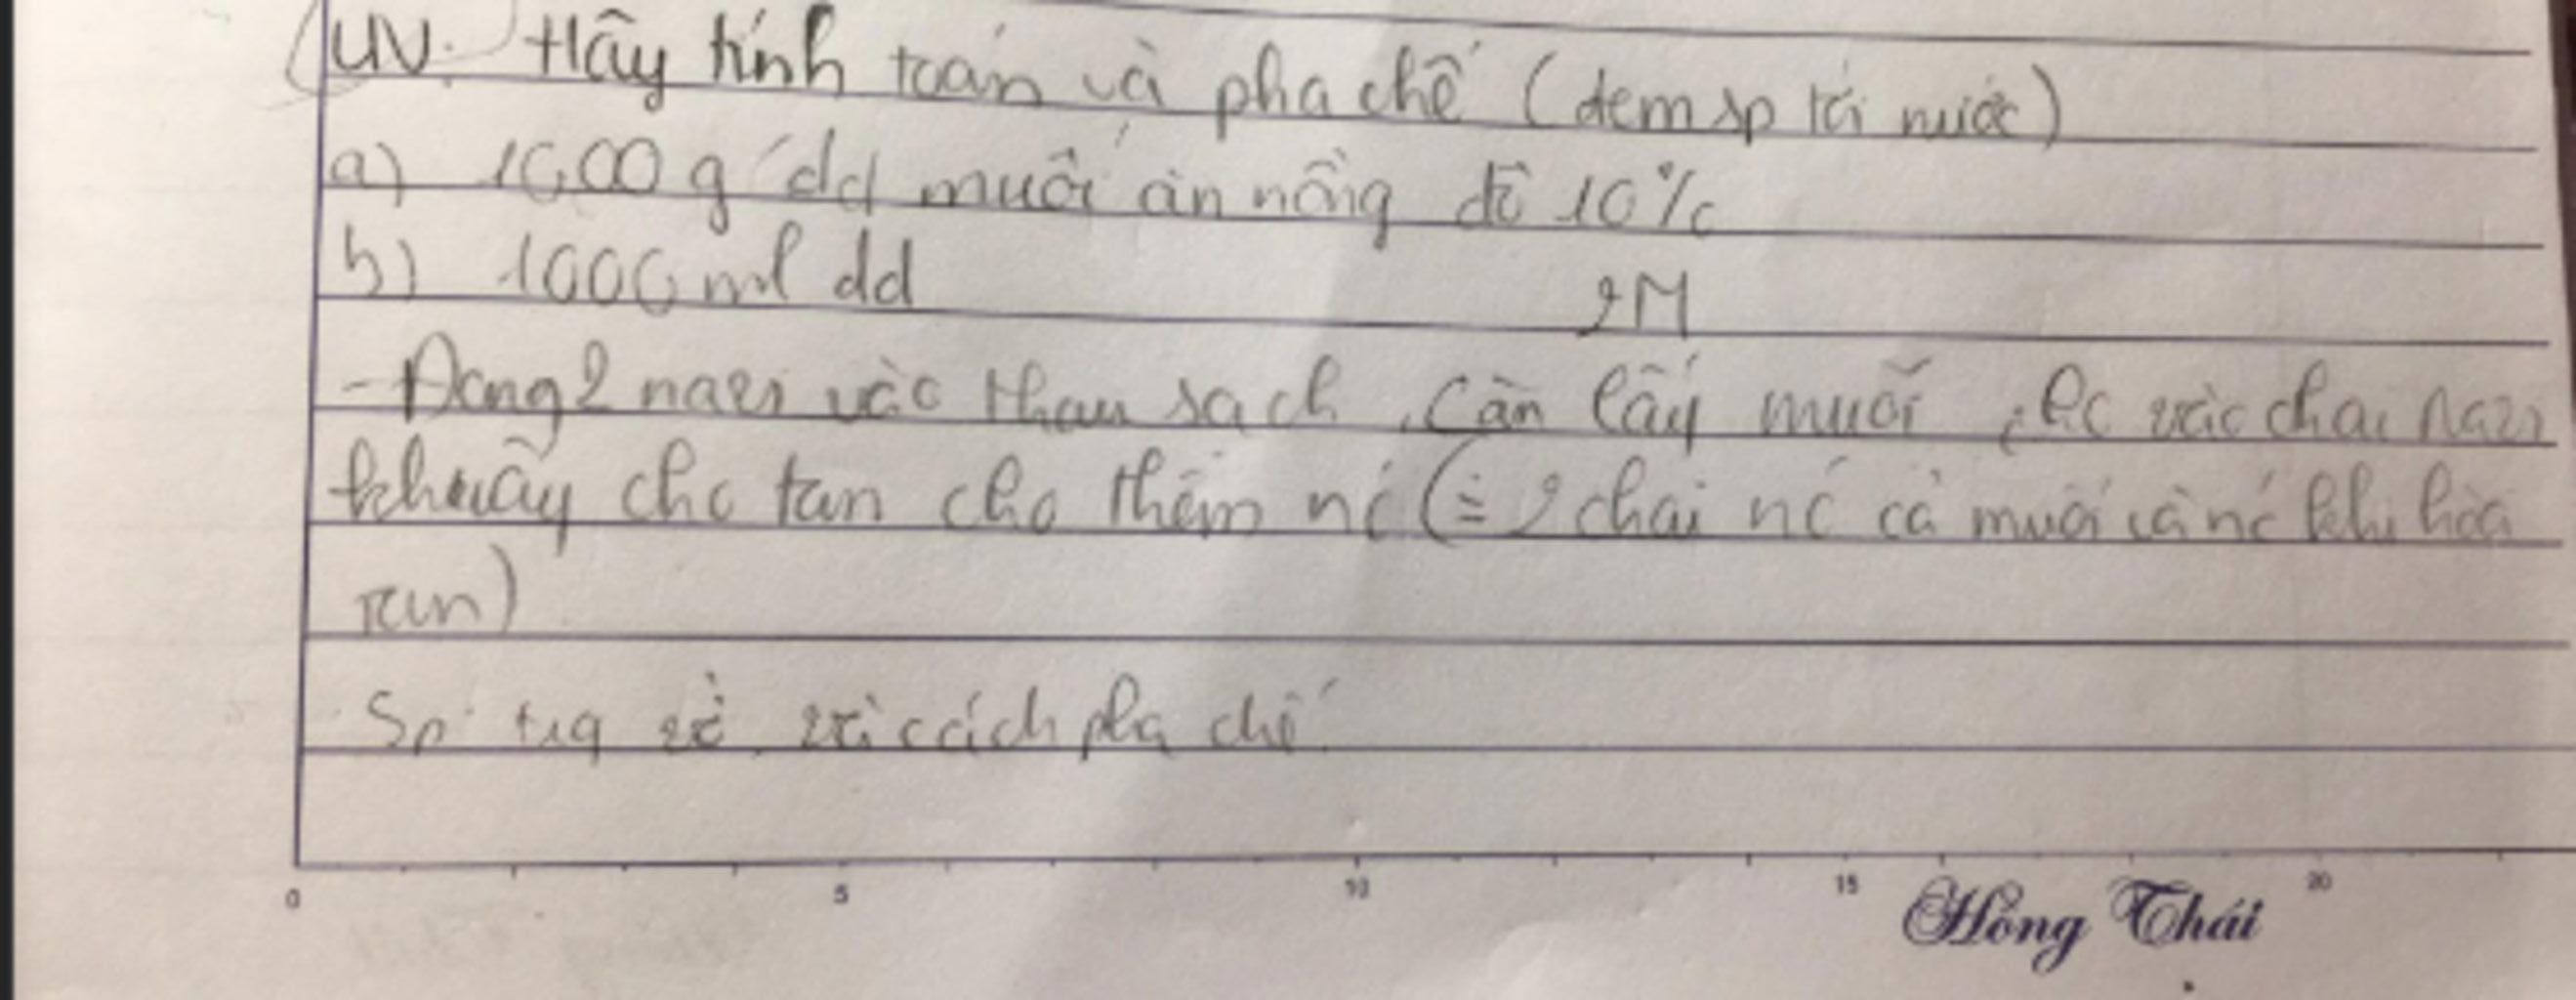 UV. Hãy tính toán và pha chế (đem sp tới nước)
a) 1000 g dd muối ăn nồng độ 10%
b) 1000 ml dd 2M
- Dùng 2 vào sạch, cân lấy muối, vào chai
khuấy cho tan cho thêm nc (÷ 2 chai nc cả muối và nc khi hòa
tan)
Sp cách pha chế
0 5 10 15 20
Hồng Thái